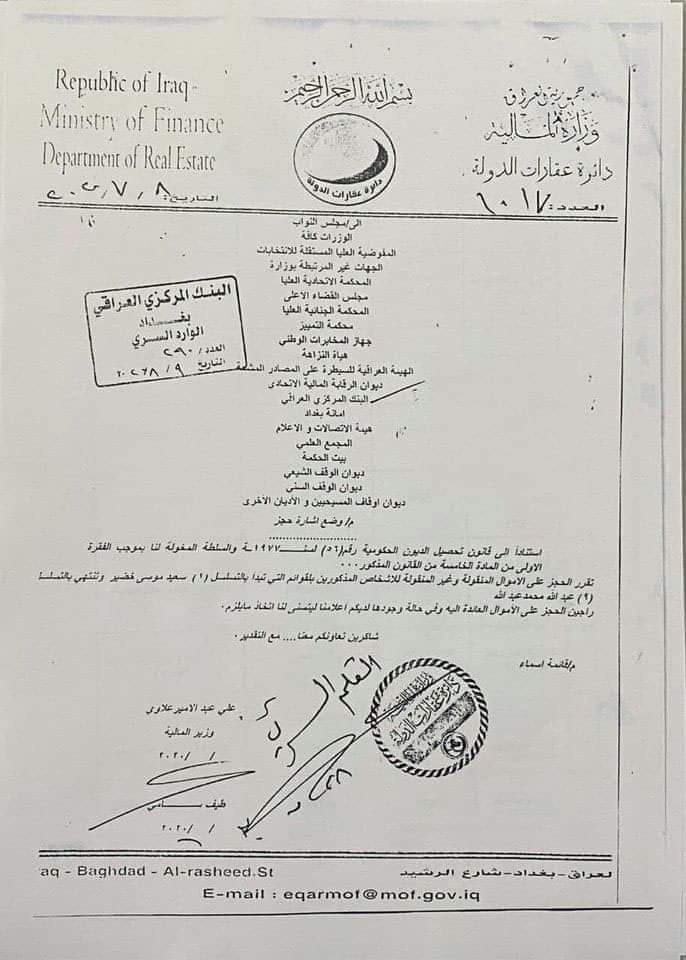 Republic of Iraq
Ministry of Finance
Department of Real Estate
بسم الله الرحمن الرحيم
جمهورية العراق
وزارة المالية
دائرة عقارات الدولة
دائرة عقارات الدولة
العدد: ٦٠١٧
التاريخ: ٢٠٢٠/٧/٨
الى/مجلس النواب
الوزرات كافة
المفوضية العليا المستقلة للانتخابات
الجهات غير المرتبطة بوزارة
المحكمة الاتحادية العليا
مجلس القضاء الاعلى
المحكمة الجنائية العليا
محكمة التمييز
جهاز المخابرات الوطني
هيأة النزاهة
الهيئة العراقية للسيطرة على المصادر المشعة
ديوان الرقابة المالية الاتحادي
البنك المركزي العراقي
امانة بغداد
هيئة الاتصالات و الاعلام
المجمع العلمي
بيت الحكمة
ديوان الوقف الشيعي
ديوان الوقف السني
ديوان اوقاف المسيحيين و الأديان الاخرى
البنك المركزي العراقي
بغداد
الوارد السري
العدد/ ٢٩٠
التاريخ
م/ وضع اشارة حجز
استناداً الى قانون تحصيل الديون الحكومية رقم(٥٦) لسنة ١٩٧٧ والسلطة المخولة لنا بموجب الفقرة
الاولى من المادة الخامسة من القانون المذكور...
تقرر الحجز على الاموال المنقولة وغير المنقولة للاشخاص المذكورين بلقوائم التي تبدأ بالتسلسل (١) سعيد موسى خضير وتنتهي بالتسلسا
(٩) عبد الله محمد عبد الله
راجين الحجز على الأموال العائدة اليه وفي حالة وجودها لديكم اعلامنا ليتسنى لنا اتخاذ مايلزم.
شاكرين تعاونكم معنا.... مع التقدير.
م/قائمة اسماء
القلم السري
علي عبد الامير علاوي
وزير المالية
/ /٢٠٢٠
طيف سامي
/ /٢٠٢٠
وزارة المالية
دائرة عقارات الدولة
aq - Baghdad - Al-rasheed.St
لعراق-بغداد-شارع الرشيد
E-mail : eqarmof@mof.gov.iq